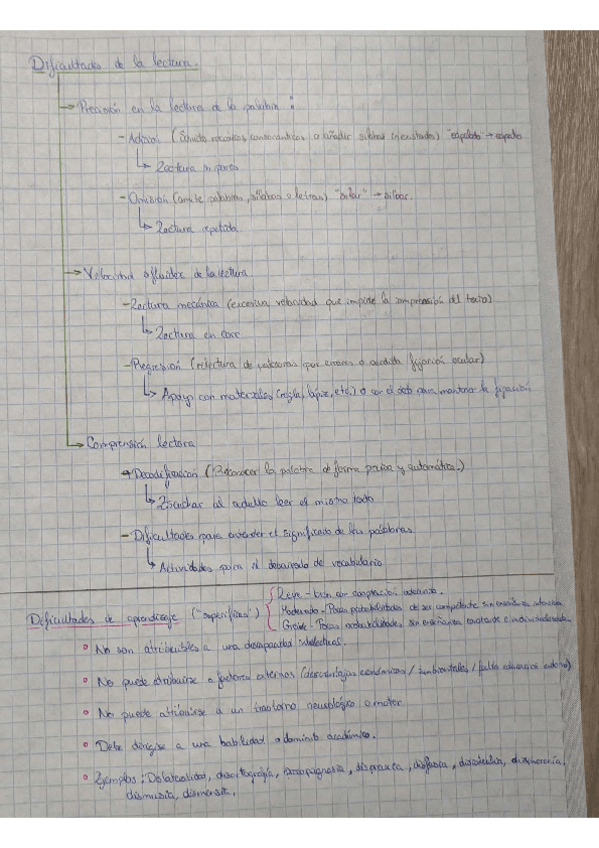 Dificultades de la lectura.
→ Precisión en la lectura de la palabra:
- Adición ( vocales, consonantes o añadir sílabas )
↳ Lectura en pares
- Omisión (omite palabras, sílabas o letras) "silar" → silbar.
↳ Lectura repetida
→ Velocidad o fluidez de la lectura
- Lectura mecánica (excesiva velocidad que impide la comprensión del texto)
↳ Lectura en coro
- Regresión (relectura de por errores o acodada fijación ocular)
↳ Apoyo con materiales (regla, lápiz, etc.) o con el dedo para mantener la fijación
→ Comprensión lectora
- Decodificación (Reconocer la palabra de forma precisa y automática.)
↳ Escuchar al adulto leer el mismo texto
- Dificultades para entender el significado de las palabras
↳ Actividades para el desarrollo de vocabulario
Dificultades de aprendizaje ("específicas")
Leve - bien con adaptación adecuada.
Moderado - Pocas probabilidades de ser competente sin enseñanza intensiva
Grave - Pocas probabilidades sin enseñanza constante e individualizada.
• No son atribuibles a una discapacidad intelectual.
• No puede atribuirse a factores externos (desventajas económicas / ambientales / falta )
• No puede atribuirse a un trastorno neurológico o motor
• Debe dirigirse a una habilidad o dominio académico.
• Ejemplos: Dislateralidad, disortografía, , dispraxia, disfasia, discalculia, ,
dismusia, .